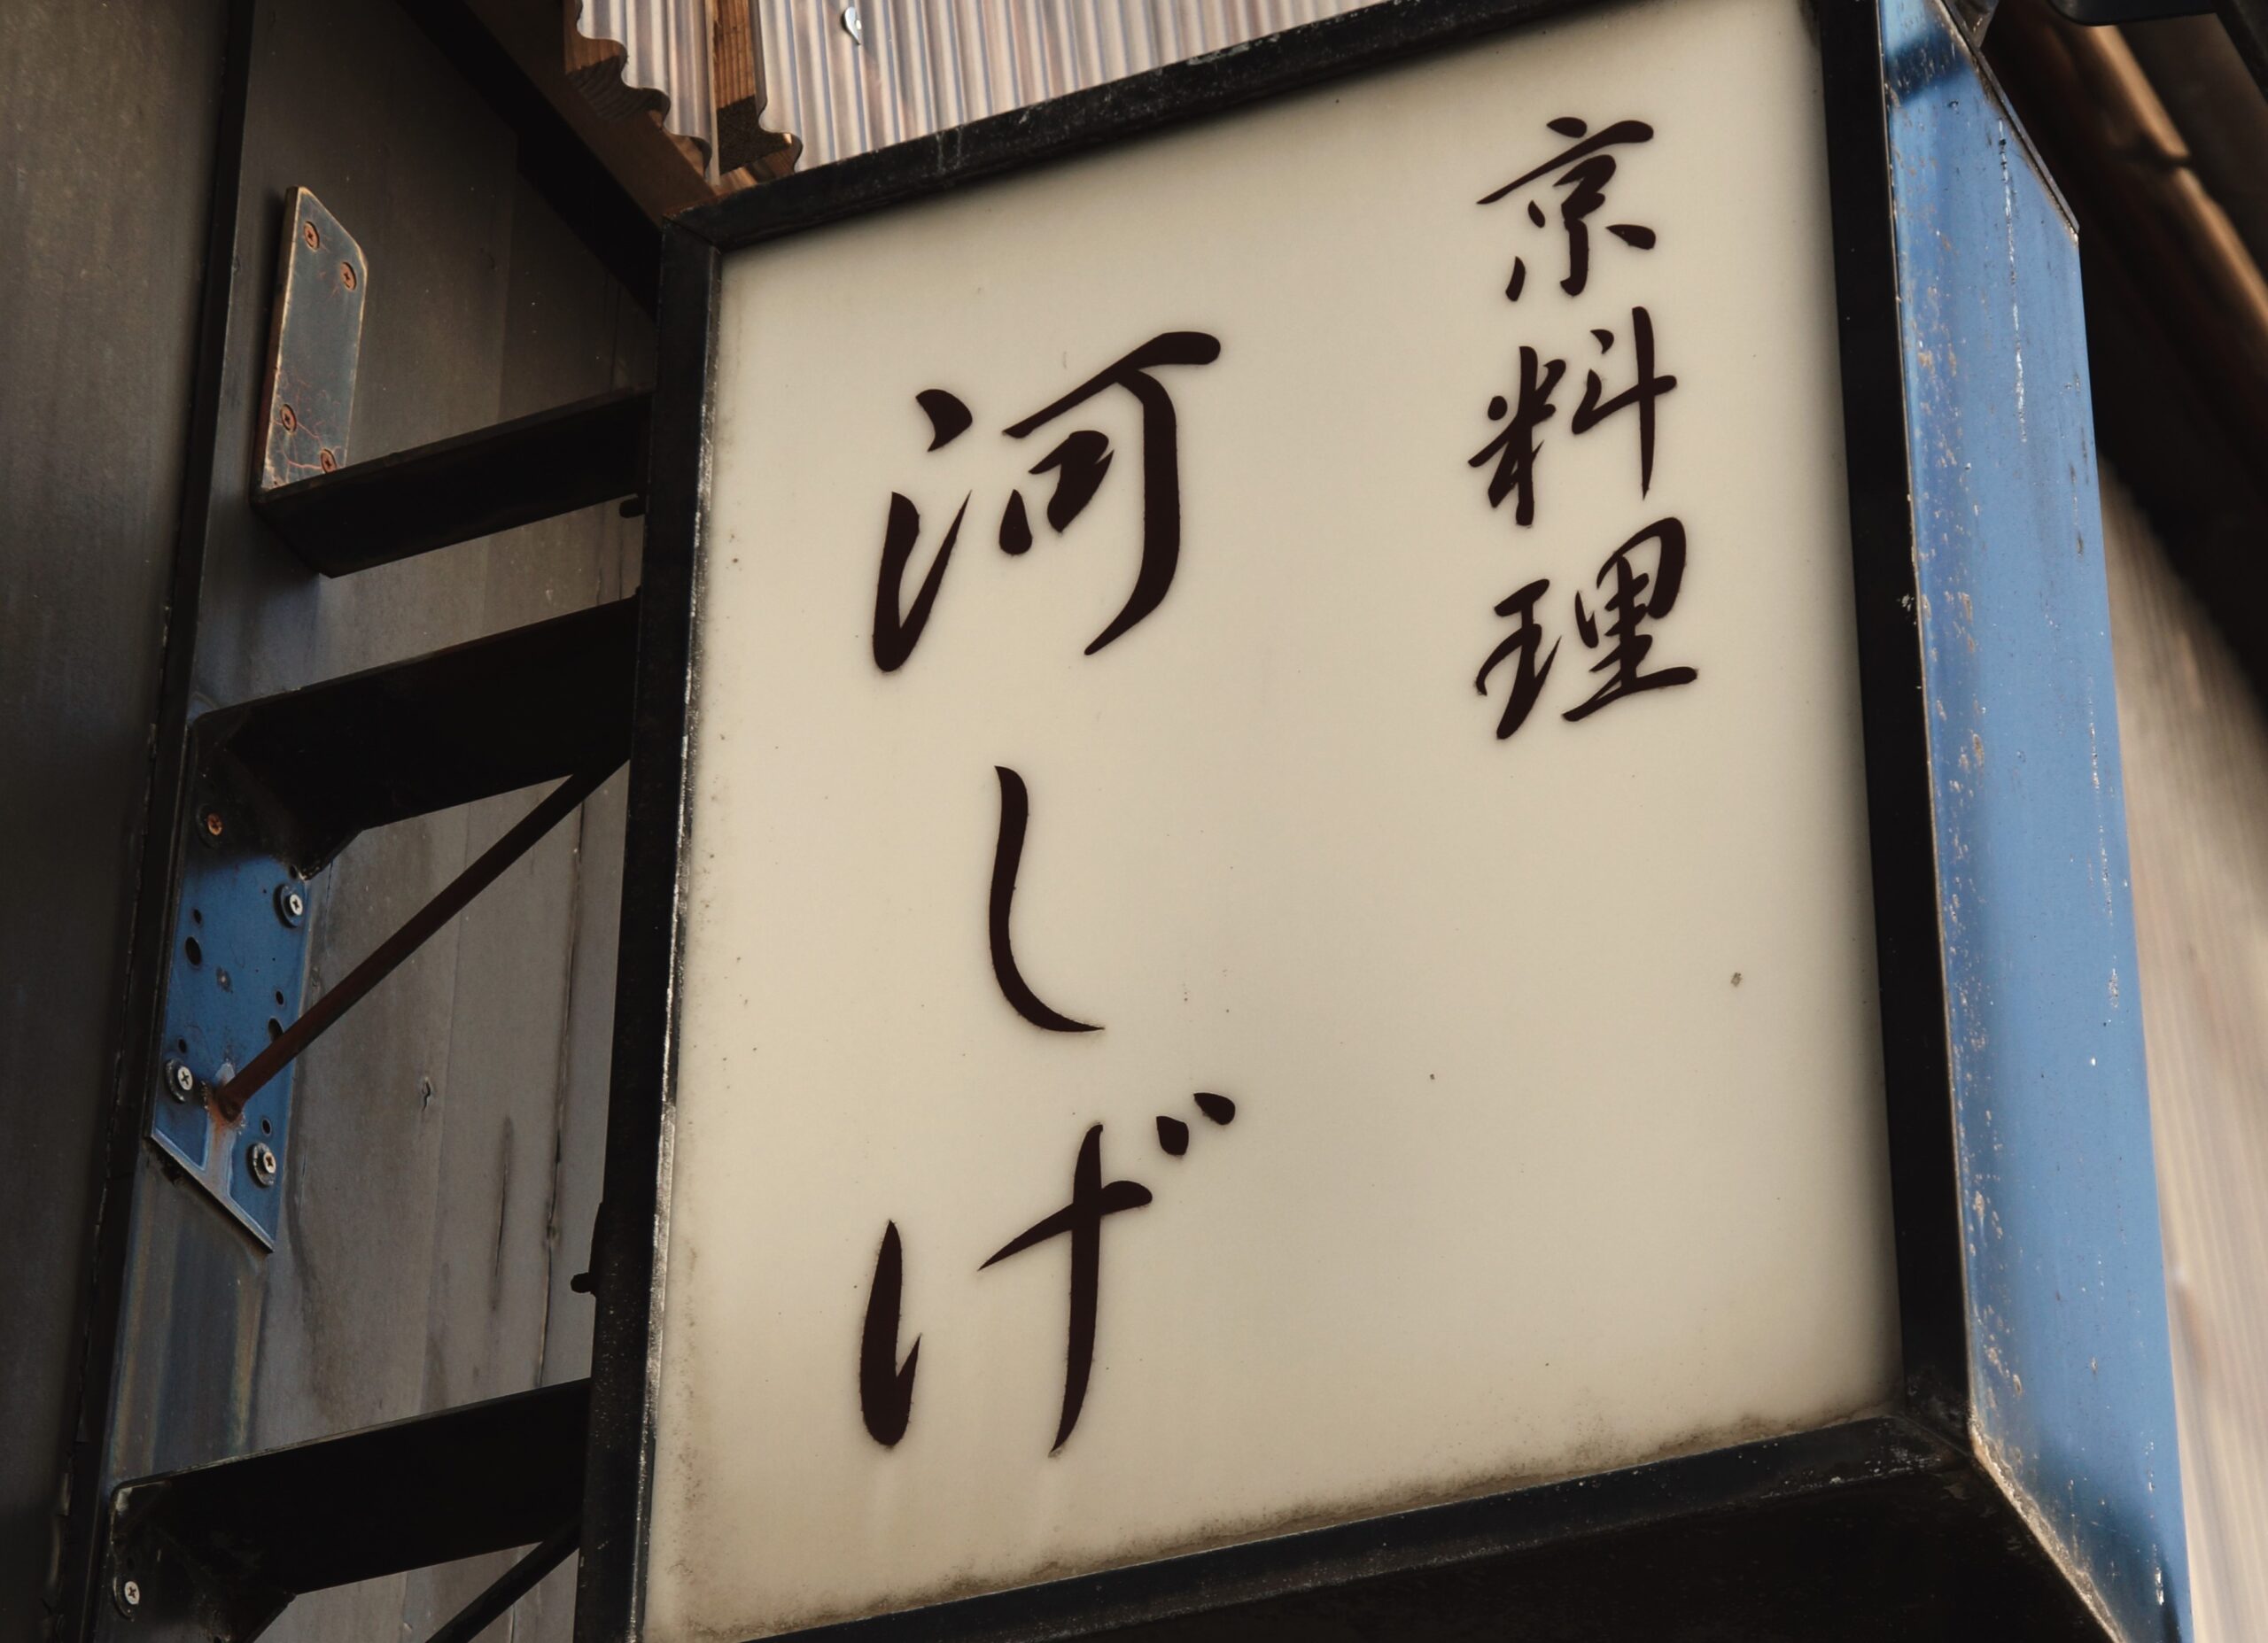 京料理
河しげ